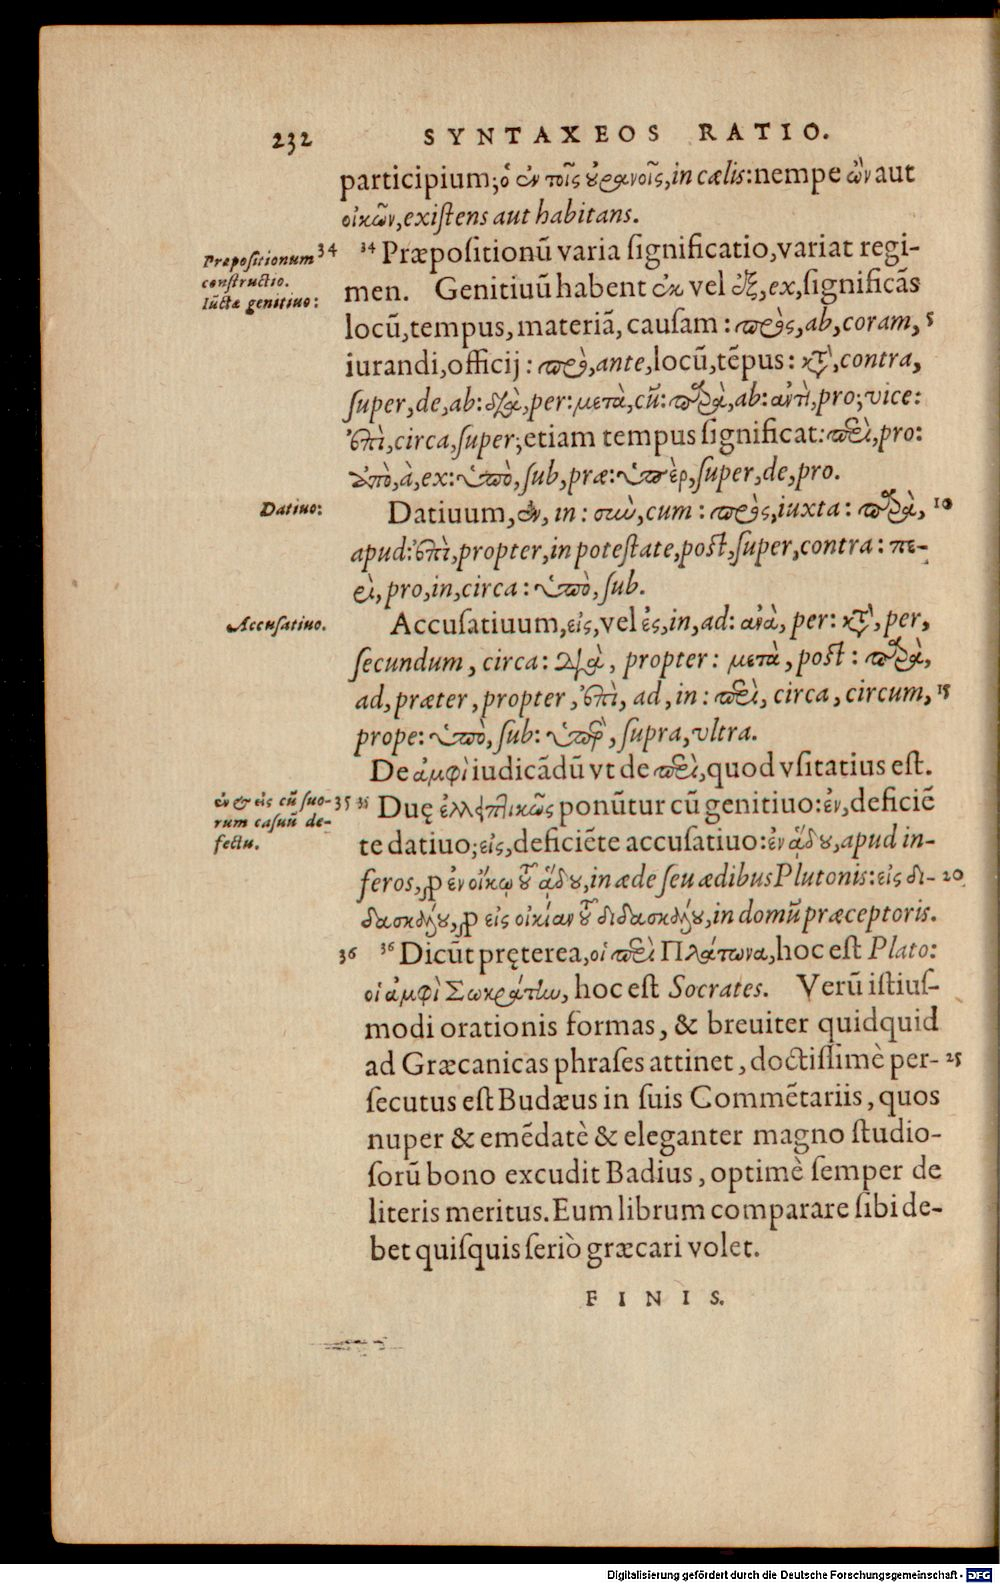 232 SYNTAXEOS RATIO.
participium; ὁ ἐν τοῖς οὐρανοῖς, in cælis: nempe ὢν aut
οἰκῶν, existens aut habitans.
Præpositionum 34
constructio.
Iũctæ genitiuo:
34 Præpositionũ varia significatio, variat regi-
men. Genitiuũ habent ἐκ vel ἐξ, ex, significãs
locũ, tempus, materiã, causam: πρὸς, ab, coram, 5
iurandi, officij: πρὸ, ante, locũ, tẽpus: κατὰ, contra,
super, de, ab: διὰ, per: μετὰ, cũ: παρὰ, ab: ἀντὶ, pro; vice:
ἐπὶ, circa, super; etiam tempus significat: περὶ, pro:
ἀπὸ, à, ex: ὑπὸ, sub, præ: ὑπὲρ, super, de, pro.
Datiuo:
Datiuum, ἐν, in: σιωὺ, cum: πρὸς, iuxta: παρὰ, 10
apud: ἐπὶ, propter, in potestate, post, super, contra: πε-
ρὶ, pro, in, circa: ὑπὸ, sub.
Accusatiuo.
Accusatiuum, εἰς, vel ἐς, in, ad: ἀνὰ, per: κατὰ, per,
secundum, circa: διὰ, propter: μετὰ, post: παρὰ,
ad, præter, propter, ἐπὶ, ad, in: περὶ, circa, circum, 15
prope: ὑπὸ, sub: ὑπὲρ, supra, vltra.
De ἀμφὶ iudicãdũ vt de περὶ, quod vsitatius est.
ἐν & εἰς cũ suo- 35
rum casuũ de-
fectu.
35 Duę ἐλλειπτικῶς ponũtur cũ genitiuo: ἐν, deficiẽ
te datiuo; εἰς, deficiẽte accusatiuo: ἐν ᾅδου, apud in-
feros, pro ἐν οἴκῳ τοῦ ᾅδου, in æde seu ædibus Plutonis: εἰς δι- 20
δασκάλου, pro εἰς οἰκίαν τοῦ διδασκάλου, in domũ præceptoris.
36 36 Dicũt pręterea, οἱ περὶ Πλάτωνα, hoc est Plato:
οἱ ἀμφὶ Σωκράτην, hoc est Socrates. Verũ istius-
modi orationis formas, & breuiter quidquid
ad Græcanicas phrases attinet, doctissimè per- 25
secutus est Budæus in suis Commẽtariis, quos
nuper & emẽdatè & eleganter magno studio-
sorũ bono excudit Badius, optimè semper de
literis meritus. Eum librum comparare sibi de-
bet quisquis seriò græcari volet.
FINIS.
Digitalisierung gefördert durch die Deutsche Forschungsgemeinschaft - DFG